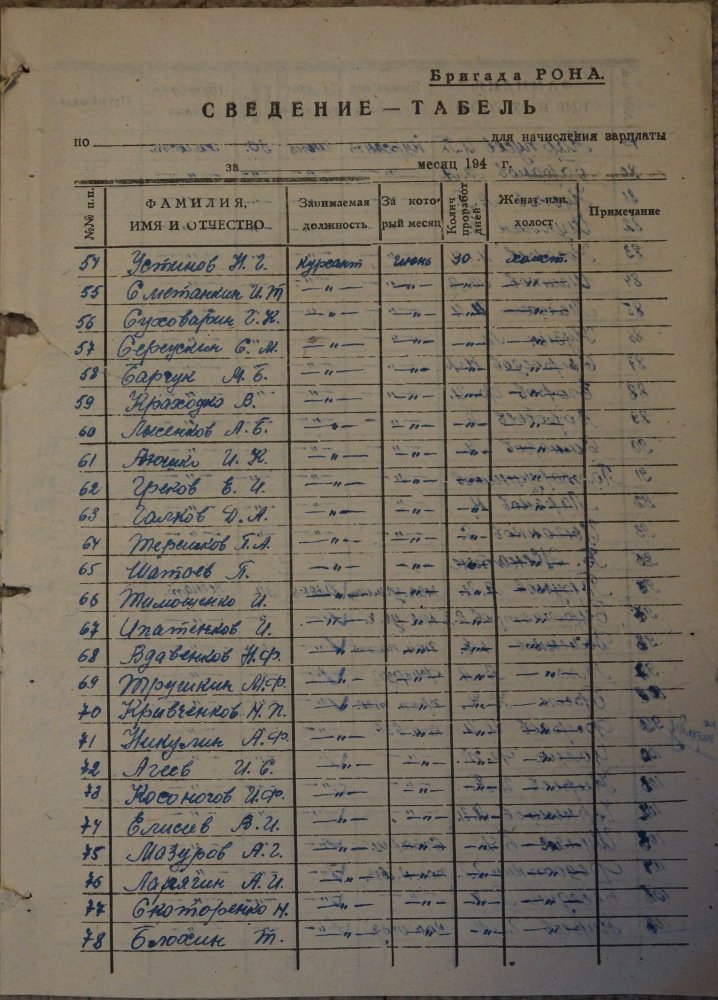 Бригада РОНА.
СВЕДЕНИЕ — ТАБЕЛЬ
по для начисления зарплаты
за месяц 194 г.
№№ п.п. ФАМИЛИЯ, ИМЯ И ОТЧЕСТВО Занимаемая должность За который месяц Колич. проработ. дней Женат или холост Примечание
54 Устинов Н. Г. Курсант июнь 30 холост.
55 Сметанкин И. Т — „ — — „ — — „ — — „ —
56 — „ — — „ — — „ — — „ —
57 С. М. — „ — — „ — — „ — — „ —
58 Барчук М. Б. — „ — — „ — — „ — — „ —
59 В. — „ — — „ — — „ — — „ —
60 Лысенков А. Б. — „ — — „ — — „ — — „ —
61 И. К. — „ — — „ — — „ — — „ —
62 Греков Е. И. — „ — — „ — — „ — — „ —
63 Галков Д. А. — „ — — „ — — „ — — „ —
64 Терешков П. А. — „ — — „ — — „ — — „ —
65 Шатоев П. — „ — — „ — — „ — — „ —
66 Тимошенко И. — „ — — „ — — „ — — „ —
67 Ипатенков И. — „ — — „ — — „ — — „ —
68 Вдавенков Н. Ф. — „ — — „ — — „ — — „ —
69 М. Ф. — „ — — „ — — „ — — „ —
70 Кривченков Н. П. — „ — — „ — — „ — — „ —
71 Никулин А. Ф. — „ — — „ — — „ — — „ —
72 Агеев И. С. — „ — — „ — — „ — — „ —
73 Косоногов И. Ф. — „ — — „ — — „ — — „ —
74 Елисиев В. И. — „ — — „ — — „ — — „ —
75 Мазуров А. Г. — „ — — „ — — „ — — „ —
76 А. И. — „ — — „ — — „ — — „ —
77 Скоторенко Н. — „ — — „ — — „ — — „ —
78 Блохин Т. — „ — — „ — — „ — — „ —